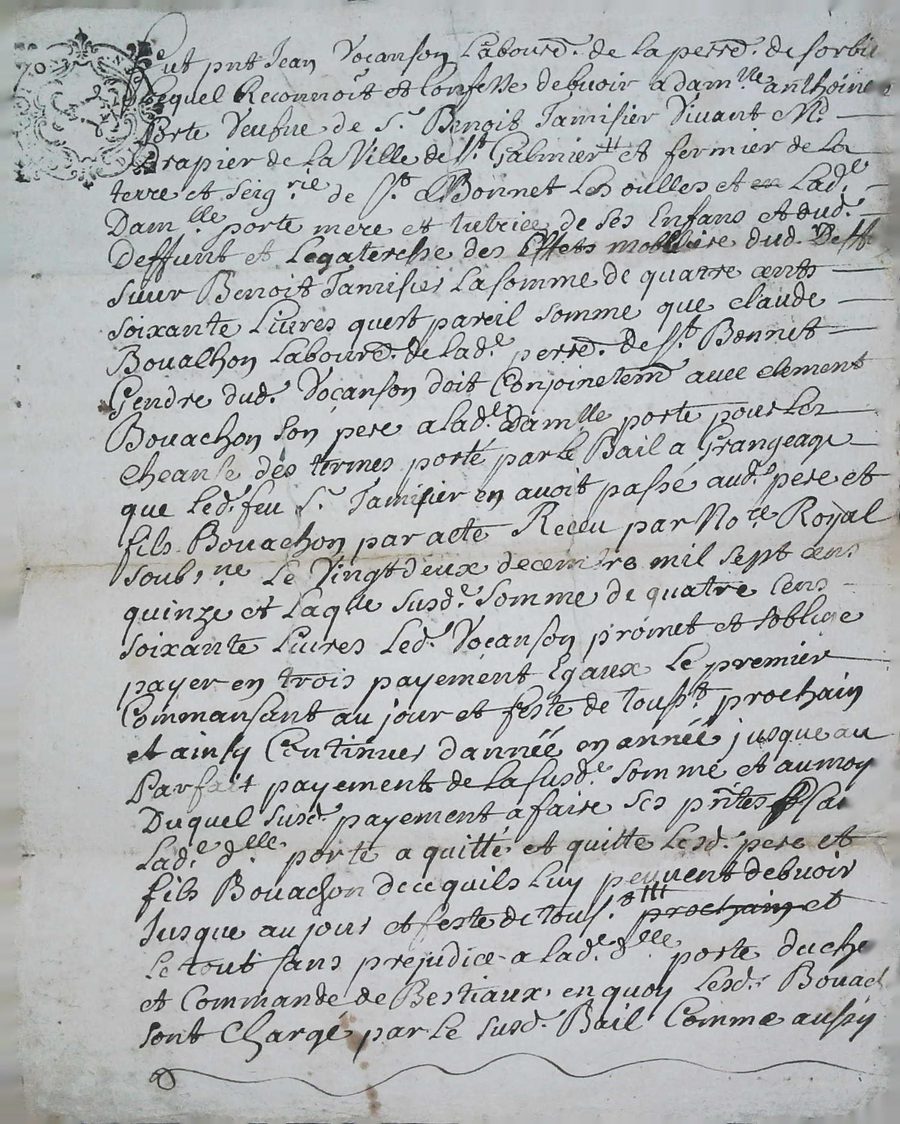 Fut pnt Jean Vocanson Laboure.r de la perre. de Sorbie
Lequel Reconnoît et Confesse debvoir a damlle anthoine
Porte Veufve de Sr. Benoit Tamisier Vivant Md.
Drapier de la Ville de St Galmier # et fermier de la
terre et Seigrie de St. Bonnet Les oulles et en Lade.
Damlle porte mere et tutrice de Ses Enfans et dud.
Deffunt et Legateresse des Effets mobiliaire dud. Deff
Sieur Benoit Tamisier La Somme de quatre cents
soixante Livres quest pareil Somme que claude
Bouachon Laboure.r de lade. perre. de St Bonnet
Gendre dud. Vocanson doit Conjoinctemt avec clement
Bouachon Son pere a lade. Damlle porte pour Les
cheanse des termes porté par Le Bail a Grangeage
que Led. feu Sr. Tamisier en avoit passé aud. pere et
fils Bouachon par acte Receu par Nore Royal
Soubsne Le Vingt deux decembre mil Sept cens
quinze et Laqlle Susde. Somme de quatre Cens
soixante Livres Led. Vocanson promet et Soblige
payer en trois payement Egaux Le premier
Commansant au jour et feste de Tousts prochain
et ainsy Continuer dannéé en annéé jusque au
Parfait payement de La Susde. Somme et au moy
Duquel Susd. payement a faire Ses pntes
Lade. dlle porte a quitté et quitte Lesd. pere et
fils Bouachon de ce quils Luy peuvent debvoir
Jusque au jour et feste de Toust. prochain et
Le tout Sans prejudice a lade. dlle porte du che
et Commande de Bestiaux en quoy Lesd. Bouach
sont Chargé par Le Susd. Bail Comme aussy